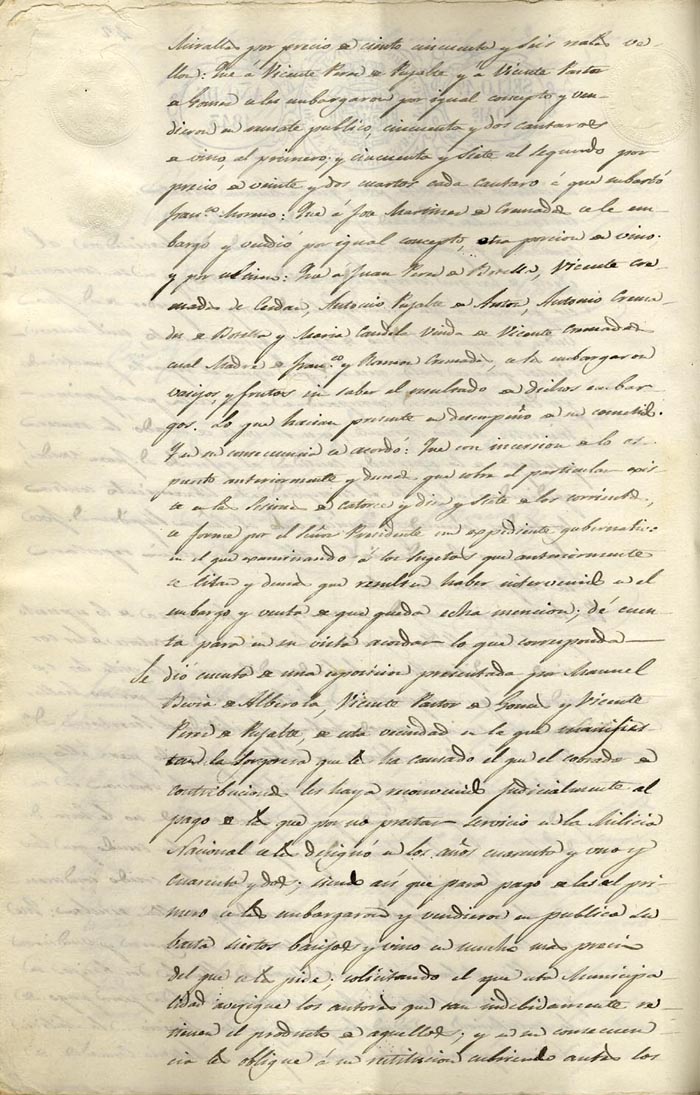 Miralles por precio de ciento cincuenta y seis reales ve-
llon: Que a Vicente Perez de Pujalte y a Vicente Pastor
de Gomez se les embargaron por igual concepto y ven-
dieron en subasta publica, cincuenta y dos cantaros
de vino, al primero; y cincuenta y siete al segundo por
precio de veinte y dos cuartos cada cantaro á que embarcó
Fran.co Moreno: Que á Jose Martinez de Cremades se le em-
bargó y vendió por igual concepto, otra porcion de vino:
y por ultimo: Que a Juan Perez de Botella, Vicente Cre-
mades de Cerdan, Antonio Pujalte de Antón, Antonio Crema-
des de Botella y Maria Candela Viuda de Vicente Cremades
cual Madre de Fran.co y Ramon Cremades, se les embargaron
vasijas, y frutos sin saber el resultado de dichos embar-
gos. Lo que hacian presente en desempeño de su cometido.
Y en su consecuencia se acordó: Que con incersion de lo es-
puesto anteriormente y demas que sobre el particular exis-
te en la Sesiones de catorce y diez y siete de los corrientes,
se forme por el Señor Presidente un expediente gubernativo
en el que examinando á los sugetos que anteriormente
se citan y demas que resulten haber intervenido en el
embargo y venta de que queda echa mencion; dé cuen-
ta para en su vista acordar lo que corresponda
Se dió cuenta de una esposicion presentada por Manuel
de Alberola, Vicente Pastor de Gomez y Vicente
Perez de Pujalte, de esta vecindad en la que manifies-
tan la sorpresa que les ha causado el que el cobrador de
contribuciones les haya reconvenido judicialmente al
pago de la que por no prestar servicio en la Milicia
Nacional se les designó en los años cuarenta y uno y
cuarenta y dos; siendo así que para pago de las del pri-
mero se les embargaron y vendieron en publica su-
basta ciertos basijos y vino en mucho mas precio
del que se les pide; solicitando el que esta Municipa-
lidad averigue los autores que tan indebidamente re-
tienen el producto de aquellos; y en su consecuen-
cia les oblique á su restitucion cubriendo antes los